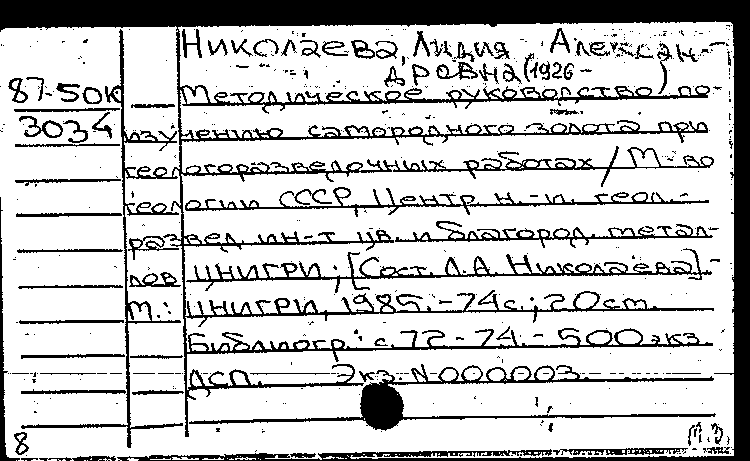 Николаева, Лидия Алексан-
дровна (1926- )
87-50К Методическое руководство по-
3034 изучению самородного золота при
геологоразведочных работах / М-во
геологии СССР, Центр. н.-и. геол.-
развед. ин-т цв. и благород. метал-
лов ЦНИГРИ; [Сост. Л.А. Николаева].-
М.: ЦНИГРИ, 1985.-74с.; 20см.
Библиогр.: с. 72-74.-500экз.
ДСП. Экз. N 000003.
8 М.З.